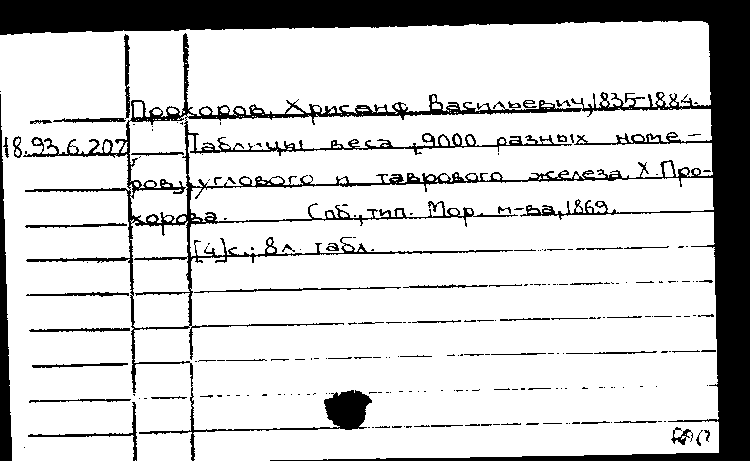 Прохоров, Хрисанф Васильевич, 1835-1884.
18.93.6.207 Таблицы веса, 9000 разных номе-
ров углового и таврового железа Х. Про-
хорова. Спб., тип. Мор. м-ва, 1869.
[4] с.; 8 л. табл.